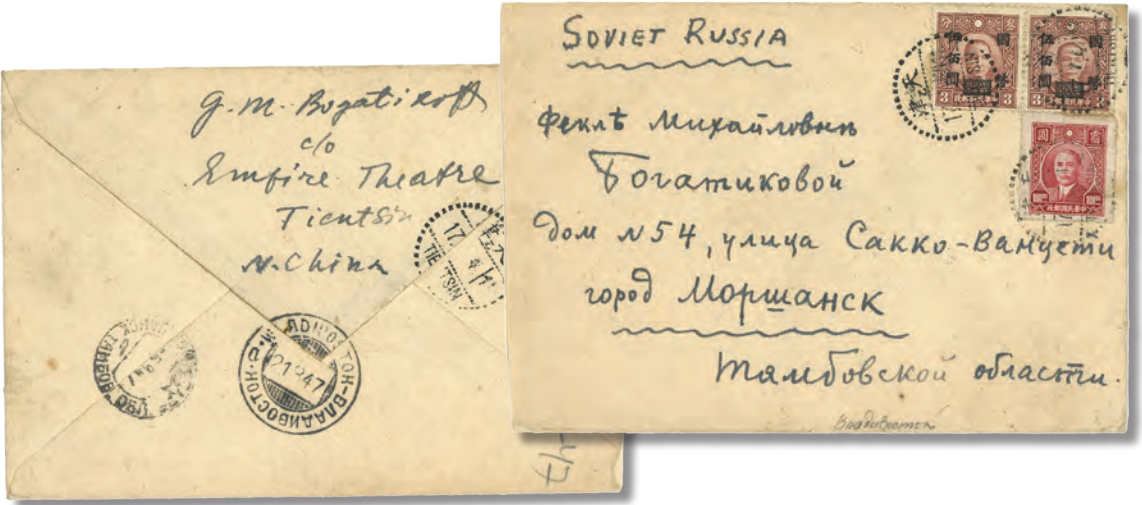 G. M. Bogatikoff
c/o
Empire Theatre
Tientsin
N. China
17
TIENTSIN
ВЛАДИВОСТОК-ВЛАДИВОСТОК
21 9 47
SOVIET RUSSIA
Феклѣ Михайловнѣ
Богатиковой
Дом N 54, улица Сакко-Ванцети
город Моршанск
Тамбовской области.
Владивосток